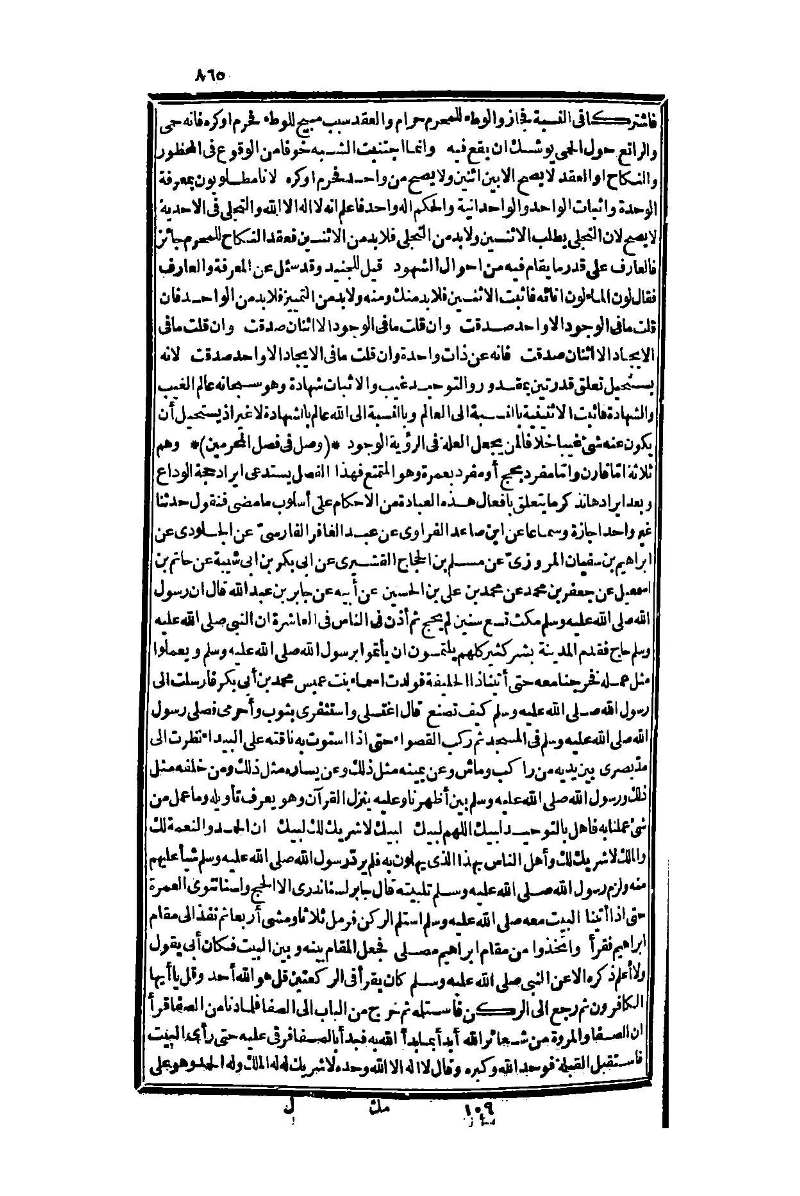 ٨٦٥
فاشتركا في النسبة فجاز والوطء للمحرم حرام والعقد سبب مبيح للوطء فحرم أو كره فانه حمى
والراتع حول الحمى يوشك ان يقع فيه وانما اجتنبت الشبه خوفا من الوقوع في المحظور
والنكاح او العقد لا يصح الا بين اثنين ولا يصح من واحد فحرم اوكره لانا مطلوبون بمعرفة
الوحدة واثبات الواحد والواحدانية والحكم اله واحد فاعلم انه لا اله الا الله والتجلى فى الاحدية
لا يصح لان التجلى يطلب الاثنين ولا بد من التجلى فلا بد من الاثنين فعقد النكاح للمحرم جائز
فالعارف على قدر ما يقام فيه من احوال الشهود قيل للجنيد وقد سئل عن المعرفة والعارف
فقال لون الماء لون انائه فأثبت الاثنين فلا بد منك ومنه ولا بد من التمييز فلا بد من الواحد فان
قلت ما فى الوجود الا واحد صدقت وان قلت ما فى الوجود الا اثنان صدقت وان قلت ما فى
الايجاد الا اثنان صدقت فانه عن ذات واحدة وان قلت ما فى الايجاد الا واحد صدقت لانه
يستحيل تعلق قدرتين بمقدور والتوحيد غيب والاثبات شهادة وهو سبحانه عالم الغيب
والشهادة فأثبت الاثنينية بالنسبة الى العالم وبالنسبة الى الله عالم بالشهادة لا غير اذ يستحيل أن
يكون عنه شئ غيبا خلافا لمن يجعل العلة فى الرؤية الوجود *(وصل فى فصل المحرمين)* وهم
ثلاثة امّا قارن وامّا مفرد بحج أو مفرد بعمرة وهو المتمتع فهذا الفصل يستدعى ايراد حجة الوداع
وبعد ايرادها نذكر ما يتعلق بافعال هذه العبادة من الاحكام على أسلوب ما مضى فنقول حدثنا
غير واحد اجازة وسماعا عن ابن صاعد الفراوى عن عبد الغافر الفارسىّ عن الجلودى عن
ابراهيم بن سفيان المروزىّ عن مسلم بن الحجاج القشيرى عن ابى بكر بن ابى شيبة عن حاتم بن
اسمعيل عن جعفر بن محمد عن محمد بن على بن الحسين عن أبيه عن جابر بن عبد الله قال ان رسول
الله صلى الله عليه وسلم مكث تسع سنين لم يحج ثم أذن فى الناس فى العاشرة ان النبى صلى الله عليه
وسلم حاج فقدم المدينة بشر كثير كلهم يلتمسون ان يأتموا برسول الله صلى الله عليه وسلم ويعملوا
مثل عمله فخرجنا معه حتى أتينا ذا الحليفة فولدت اسماء بنت عميس محمد بن أبى بكر فارسلت الى
رسول الله صلى الله عليه وسلم كيف تصنع قال اغتسلى واستثفرى بثوب وأحرمى فصلى رسول
الله صلى الله عليه وسلم فى المسجد ثم ركب القصواء حتى اذا استوت به ناقته على البيداء نظرت الى
مدّ بصرى بين يديه من راكب وماش وعن يمينه مثل ذلك وعن يساره مثل ذلك ومن خلفه مثل
ذلك ورسول الله صلى الله عليه وسلم بين أظهرنا وعليه ينزل القرآن وهو يعرف تأويله وما عمل من
شئ عملنا به فأهل بالتوحيد لبيك اللهم لبيك لبيك لا شريك لك لبيك ان الحمد والنعمة لك
والملك لا شريك لك وأهل الناس بهذا الذى يهلون به فلم يردّ رسول الله صلى الله عليه وسلم شيأ عليهم
منه ولزم رسول الله صلى الله عليه وسلم تلبيته قال جابر لسنا ندرى الا الحج ولسنا ننوى العمرة
حتى اذا أتينا البيت معه صلى الله عليه وسلم استلم الركن فرمل ثلاثا ومشى أربعا ثم نفذ الى مقام
ابراهيم فقرأ واتخذوا من مقام ابراهيم مصلى فجعل المقام بينه وبين البيت فكان أبى يقول
ولا أعلم ذكره الا عن النبى صلى الله عليه وسلم كان يقرأ فى الركعتين قل هو الله أحد وقل يا أيها
الكافرون ثم رجع الى الركن فاستلمه ثم خرج من الباب الى الصفا فلما دنا من الصفا قرأ
ان الصفا والمروة من شعائر الله أبدأ بما بدأ الله به فبدأ بالصفا فرقى عليه حتى رأى البيت
فاستقبل القبلة فوحد الله وكبره وقال لا اله الا الله وحده لا شريك له له الملك وله الحمد وهو على
١٠٩ مك ل